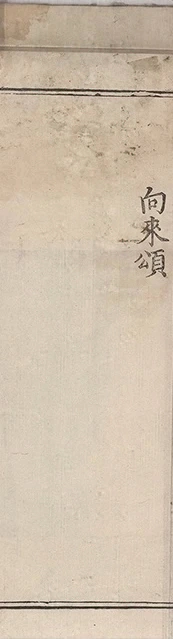 向來頌